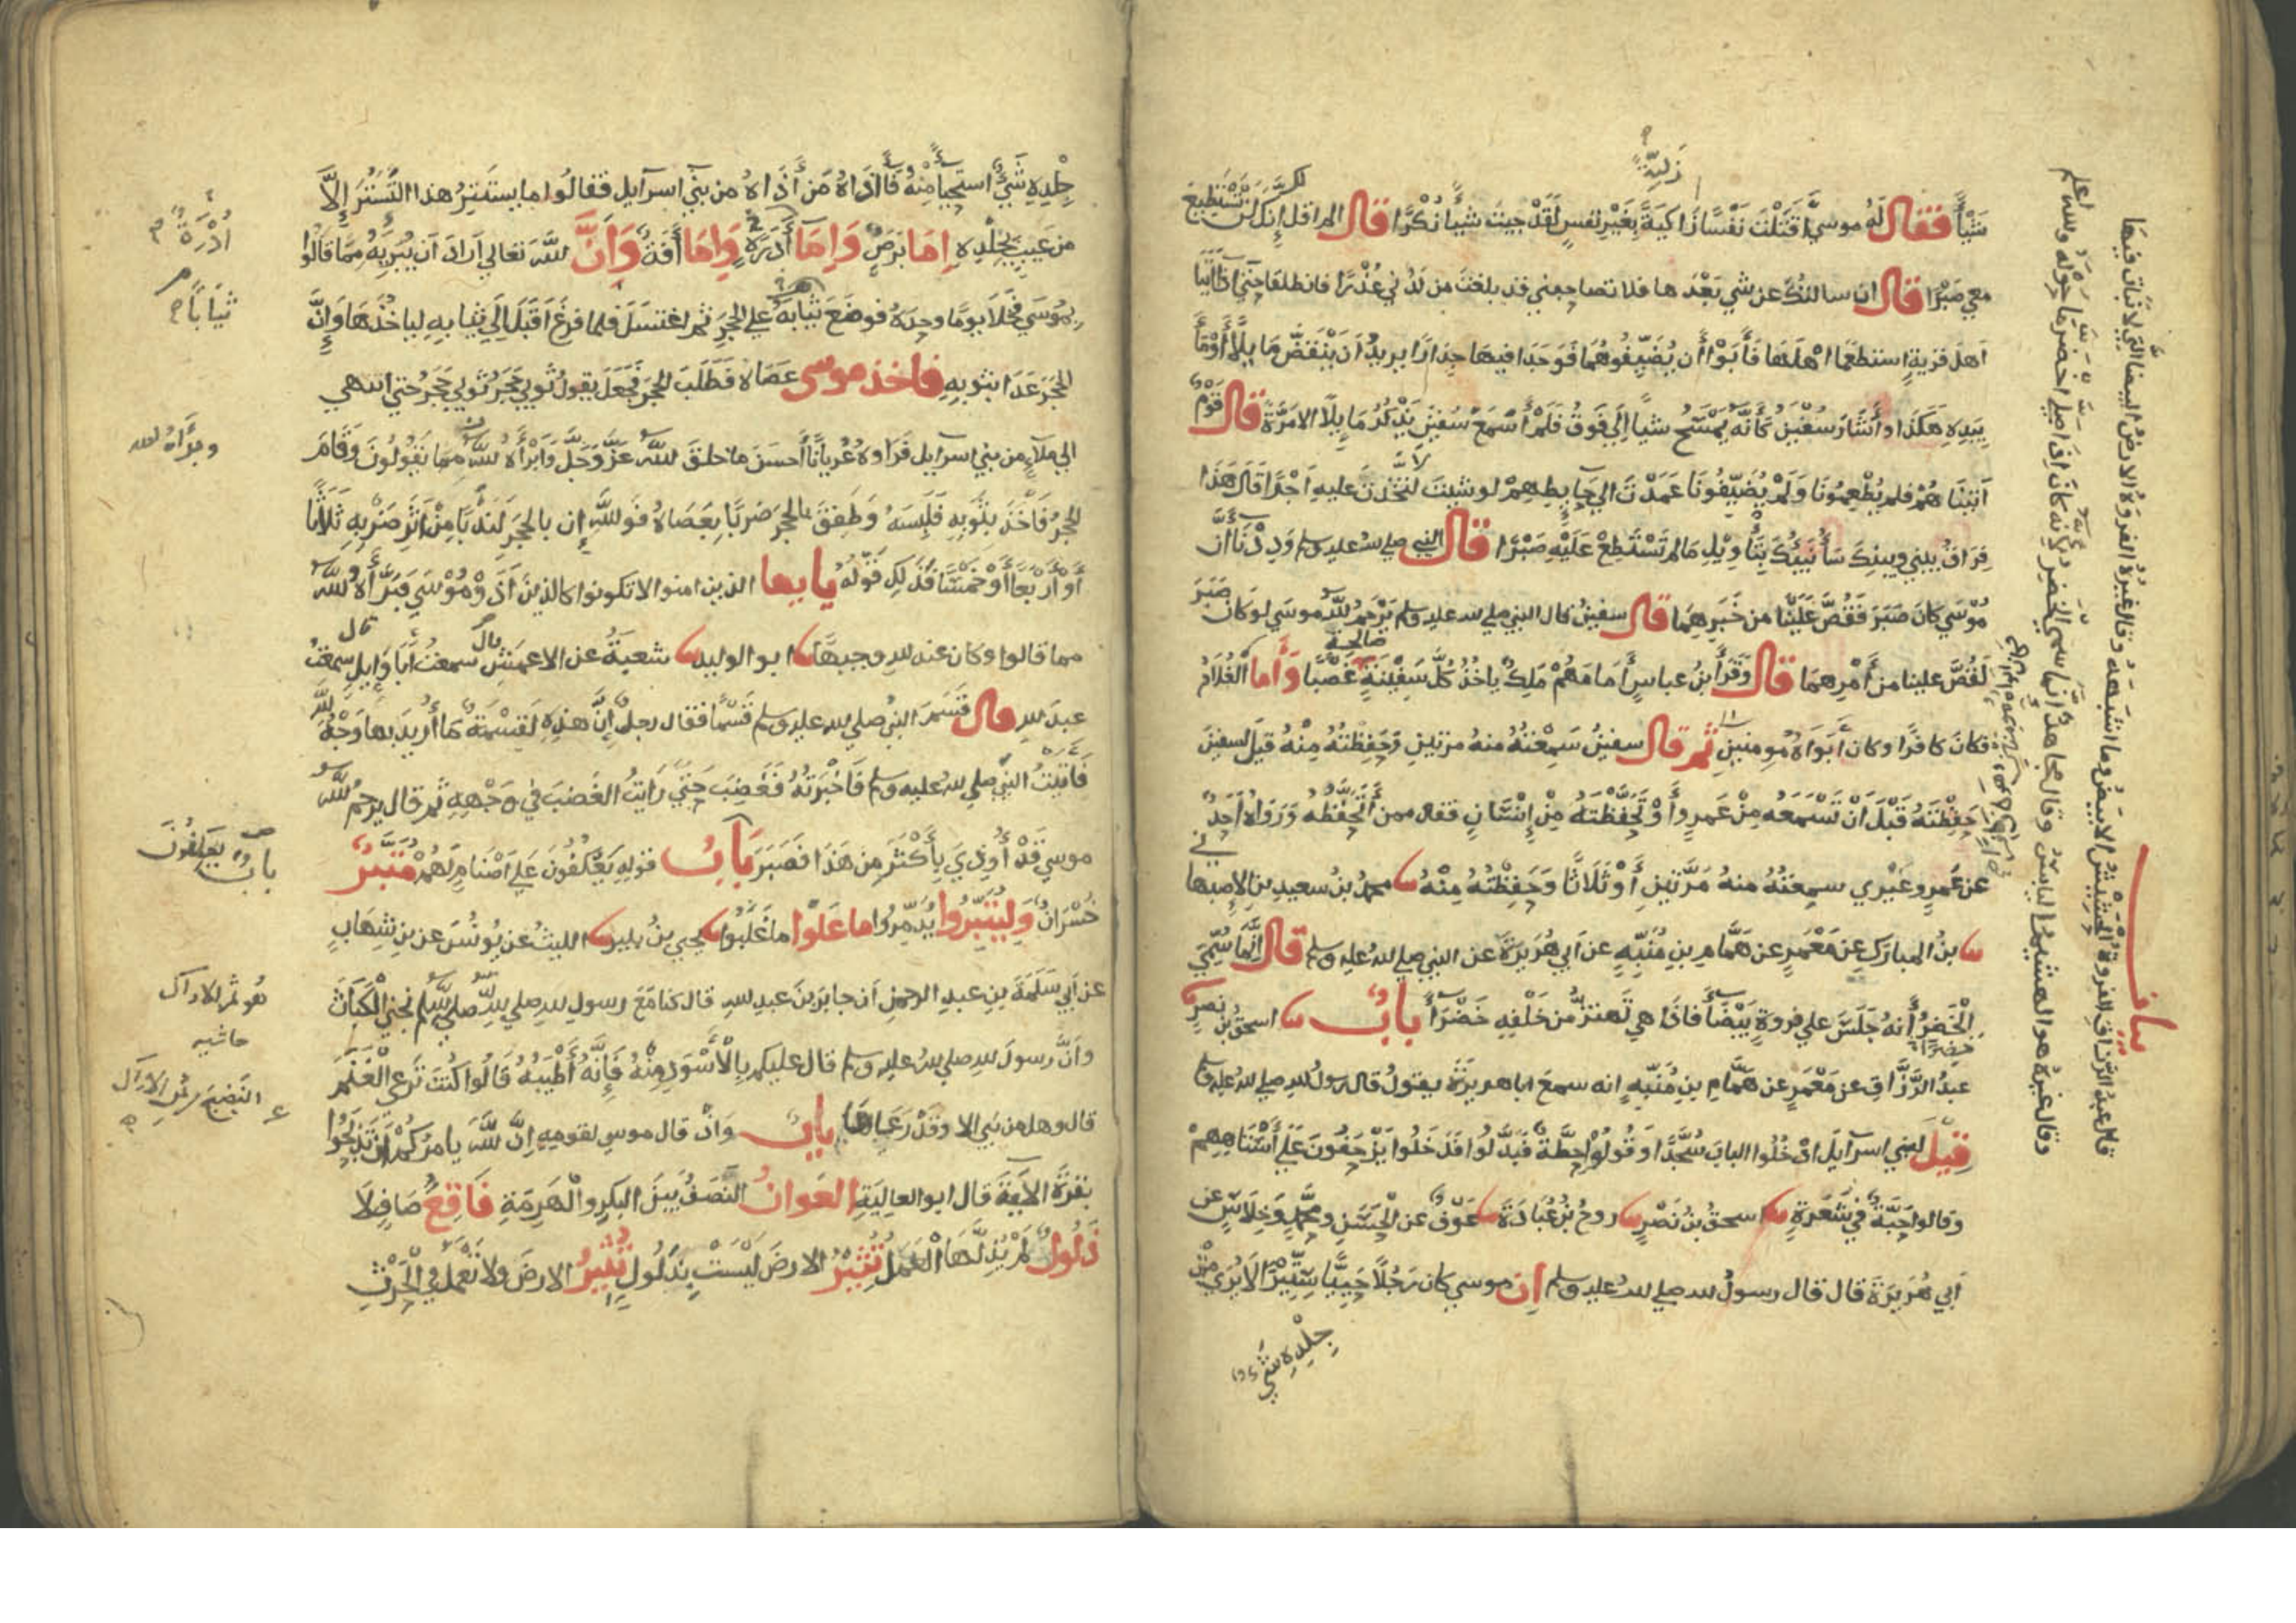 زكية
شيأ فقال له موسى اقتلت نفسا زاكية بغير نفس لقد جيت شيأ نكرا قال الم اقل لك انك لن تستطيع
معي صبرا قال ان سالتك عن شي بعدها فلا تصاحبني قد بلغت من لدني عذرا فانطلقا حتى اذا اتيا
اهل قرية استطعما اهلها فأبوا أن يضيفوهما فوجدا فيها جدارا يريد ان ينقض مايلا أومأ
بيده هكذا وأشار سفين كأنه يمسح شيأ إلى فوق فلم أسمع سفين يذكر مايلا الا مرة قال قوم
أتيناهم فلم يطعمونا ولم يضيفونا عمدت الى حايطهم لو شيت لتخذت عليه اجرا قال هذا
فراق بيني وبينك سأنبيك بتأويل مالم تستطع عليه صبرا قال النبي صلى الله عليه وسلم وددنا أن
موسى كان صبر فقص علينا من خبرهما قال سفين قال النبي صلى الله عليه وسلم يرحم الله موسى لو كان صبر
لقص علينا من أمرهما قال وقرأ بن عباس أمامهم ملك ياخذ كل سفينة صالحة غصبا وأما الغلام
فكان كافرا وكان أبواه مومنين ثم قال سفين سمعته منه مرتين وحفظته منه قيل لسفين
حفظته قبل ان تسمعه من عمرو أو تحفظته من إنسان فقال ممن أتحفظه ورواه أحد
عن عمرو غيري سمعته منه مرتين أو ثلاثا وحفظته منه محمد بن سعيد بن الاصبهاني
بن المبارك عن معمر عن همام بن منبه عن أبي هريرة عن النبي صلى الله عليه وسلم قال إنما سمي
الخضر أنه جلس على فروة بيضأ فاذا هي تهتز من خلفه خضرأ باب اسحق بن نصر
خضرأ
عبد الرزاق عن معمر عن همام بن منبه انه سمع ابا هريرة يقول قال رسول الله صلى الله عليه وسلم
قيل لبني اسرآيل ادخلوا الباب سجدا وقولوا حطة فبدلوا فدخلوا يزحفون على أستاههم
وقالوا حبة في شعرة اسحق بن نصر روح بن عبادة عوف عن الحسن ومحمد وخلاس عن
أبي هريرة قال قال رسول الله صلى الله عليه وسلم ان موسى كان رجلا حييا ستيرا لا يرى من
جلده شي
قال عبد الرزاق الفروة الحشيش الابيض وما اشبهه وقال غيره الفروة الارض البيضا التي لا نبات فيها
وقال غيره هو الهشيم اليابس وقال مجاهد إنما سمي الخضر لأنه كان اذا صلى اخضر ما حوله والله اعلم
جلده شي استحيأ منه فأذاه من أذاه من بني اسرآيل فقالوا ما يستتر هذا التستر إلا
من عيب بجلده إما برص وإما أدرة وإما أفة وأن الله تعالى أراد أن يبريه مما قالوا
أدرة
بموسى فخلا يوما وحده فوضع ثيابه على الحجر ثم اغتسل فلما فرغ اقبل إلى ثيابه لياخذها وإن
ثيابا
الحجر عدا بثوبه فاخذ موسى عصاه فطلب الحجر فجعل يقول ثوبي حجر ثوبي حجر حتى انتهى
الى ملأ من بني اسرآيل فرأوه عريانا أحسن ما خلق الله عز وجل وأبرأه الله مما يقولون وقام
وبرأه الله
الحجر فأخذ بثوبه فلبسه وطفق بالحجر ضربا بعصاه فوالله إن بالحجر لندبا من أثر ضربه ثلاثا
أو أربعا أو خمسا فذلك قوله يايها الذين امنوا لا تكونوا كالذين آذوا موسى فبرأه الله
مما قالوا وكان عند الله وجيها ابو الوليد شعبة عن الاعمش قال سمعت أبا وايل قال سمعت
عبد الله قال قسم النبي صلى الله عليه وسلم قسما فقال رجل إن هذه لقسمة ما أريد بها وجه الله
فأتيت النبي صلى الله عليه وسلم فأخبرته فغضب حتى رايت الغضب في وجهه ثم قال يرحم الله
موسى قد أوذي بأكثر من هذا فصبر باب قوله يعكفون على أصنام لهم متبر
باب يعكفون
خسران وليتبروا يدمروا ما علوا ما غلبوا يحيى بن بكير الليث عن يونس عن بن شهاب
عن أبي سلمة بن عبد الرحمن أن جابر بن عبد الله قال كنا مع رسول الله صلى الله عليه وسلم نجني الكباث
هو ثمر الاراك
حاشيه
وأن رسول الله صلى الله عليه وسلم قال عليكم بالأسود منه فإنه أطيبه قالوا كنت ترعى الغنم
النضيج من ثمر الاراك
قال وهل من نبي الا وقد رعاها باب وإذ قال موسى لقومه إن الله يامركم أن تذبحوا
بقرة الآية قال ابو العالية العوان النصف بين البكر والهرمة فاقع صاف لا
ذلول لم يذلها العمل تثير الارض ليست بذلول تثير الارض ولا تعمل في الحرث